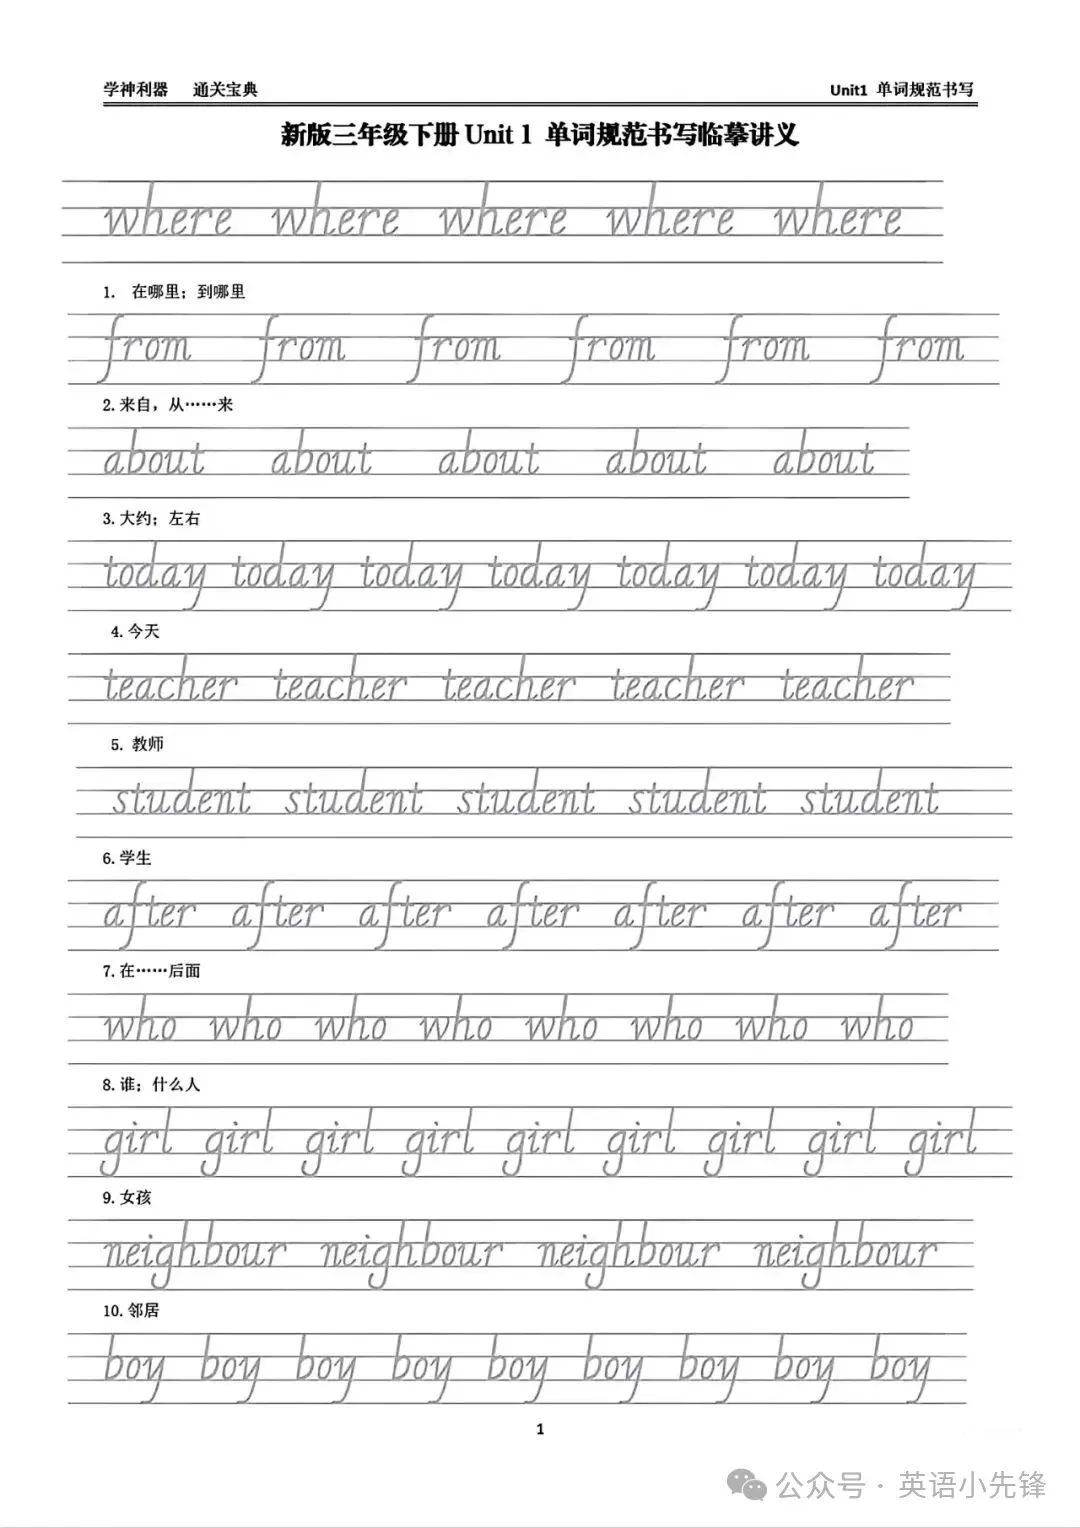 学神利器 通关宝典 Unit1 单词规范书写
新版三年级下册 Unit 1 单词规范书写临摹讲义
where where where where where
1. 在哪里；到哪里
from from from from from from
2. 来自，从……来
about about about about about
3. 大约；左右
today today today today today today today
4. 今天
teacher teacher teacher teacher teacher
5. 教师
student student student student student
6. 学生
after after after after after after after
7. 在……后面
who who who who who who who who
8. 谁；什么人
girl girl girl girl girl girl girl girl girl
9. 女孩
neighbour neighbour neighbour neighbour
10. 邻居
boy boy boy boy boy boy boy boy boy
1
公众号 · 英语小先锋